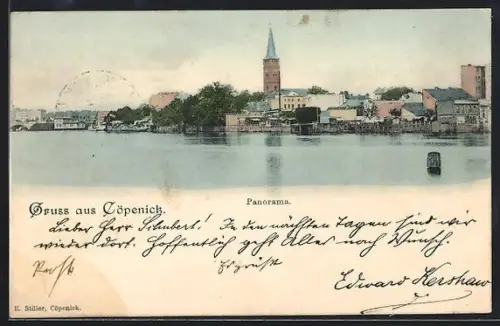 Gruss aus Cöpenick.
Panorama.
Lieber Herr Schubert! In den nächsten Tagen sind wir
wieder dort. Hoffentlich geht Alles nach Wunsch.
Es grüßt
Edward Kershaw
E. Stiller, Cöpenick.